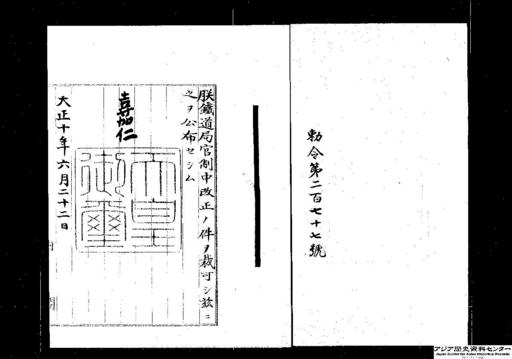 勅令第二百七十七號
朕鐵道局官制中改正ノ件ヲ裁可シ玆ニ
之ヲ公布セシム
嘉仁
天皇
御璽
大正十年六月二十二日
アジア歴史資料センター
Japan Center for Asian Historical Records